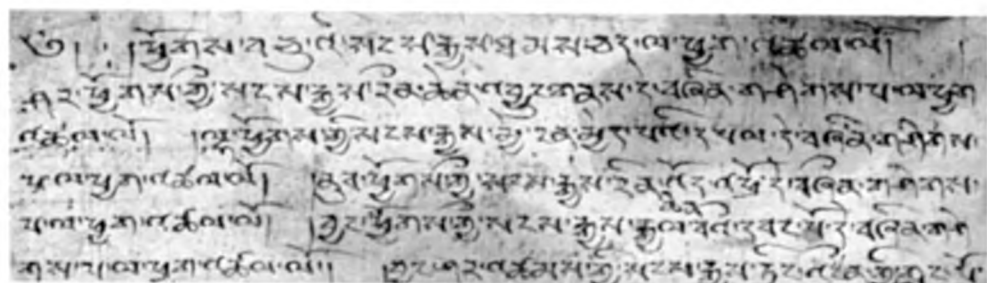 ༄། །ཕྱོགས་བཅུའི་སངས་རྒྱས་ཐམས་ཅད་ལ་ཕྱག་འཚལ་ལོ། །
ཤར་ཕྱོགས་ཀྱི་སངས་རྒྱས་རིན་ཆེན་འབྱུང་གནས་དེ་བཞིན་གཤེགས་པ་ལ་ཕྱག
འཚལ་ལོ། །ལྷོ་ཕྱོགས་ཀྱི་སངས་རྒྱས་མྱེ་ངན་མྱེད་པའི་དཔལ་དེ་བཞིན་གཤེགས་
པ་ལ་ཕྱག་འཚལ་ལོ། །ནུབ་ཕྱོགས་ཀྱི་སངས་རྒྱས་རིན་འོད་འཕྲོ་དེ་བཞིན་གཤེགས་
པ་ལ་ཕྱག་འཚལ་ལོ། །བྱང་ཕྱོགས་ཀྱི་སངས་རྒྱས་རྒྱལ་བའི་དབང་པོ་དེ་བཞིན་གཤེ
གས་པ་ལ་ཕྱག་འཚལ་ལོ།། །བྱང་ཤར་འཚམས་ཀྱི་སངས་རྒྱས་ཏིང་འཛིན་གྱི་གླང་པོ་